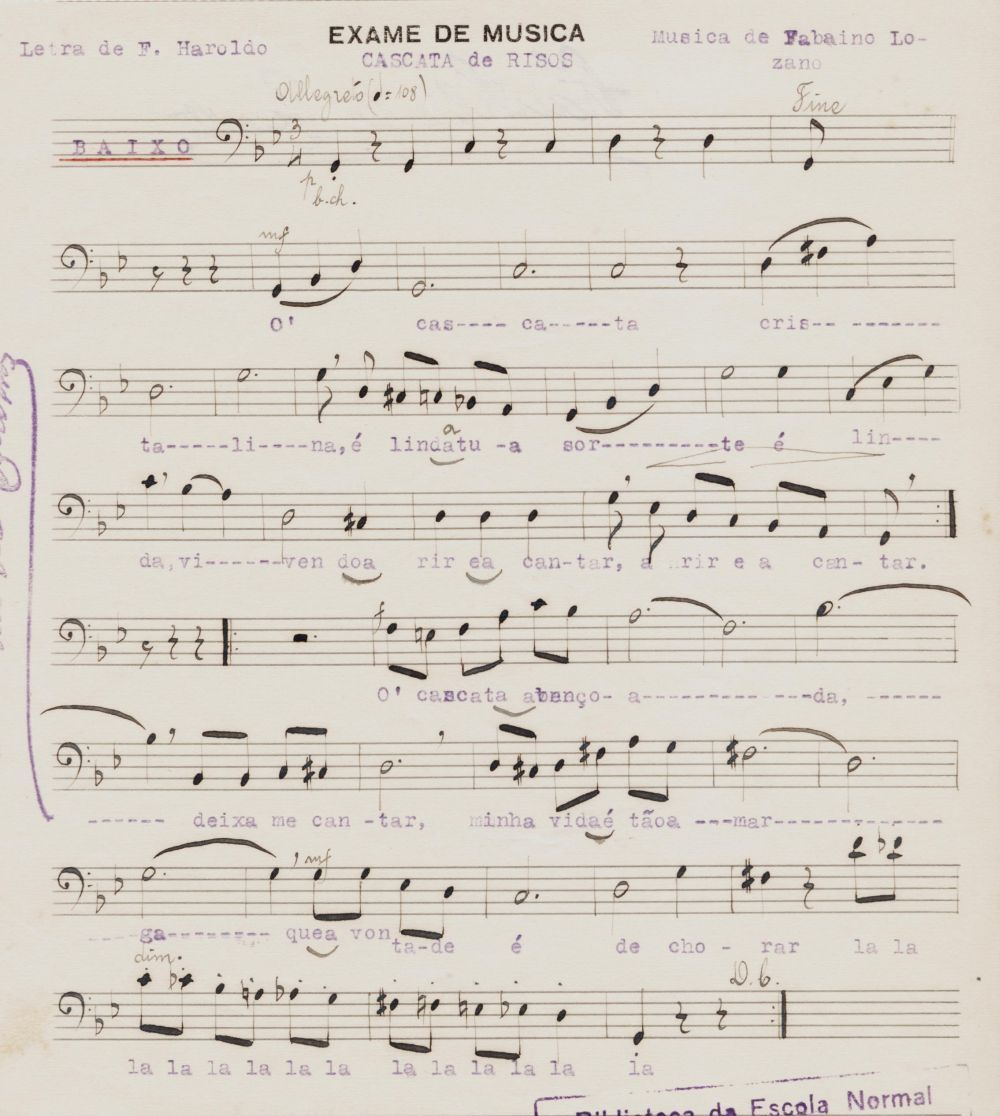 EXAME DE MUSICA
Letra de F. Haroldo
CASCATA de RISOS
Musica de Fabaino Lo-
zano
Allegreto (=108)
Fine
BAIXO
3
4
p
b.ch.
mf
O' cas---- ca------ta cris-- -------
ta-----li----na,é lindatu -a sor----------te é lin----
a
da,vi------ven doa rir ea can-tar, a rir e a can- tar.
f
O' cascata abenço- a--------- ----da, ------
------ deixa me can -tar, minha vidaé tãoa ---mar-------------
mf
----ga-------- quea von ta-de é de cho - rar la la
dim.
D.C.
la la la la la la la la la la la la
Biblioteca da Escola Normal